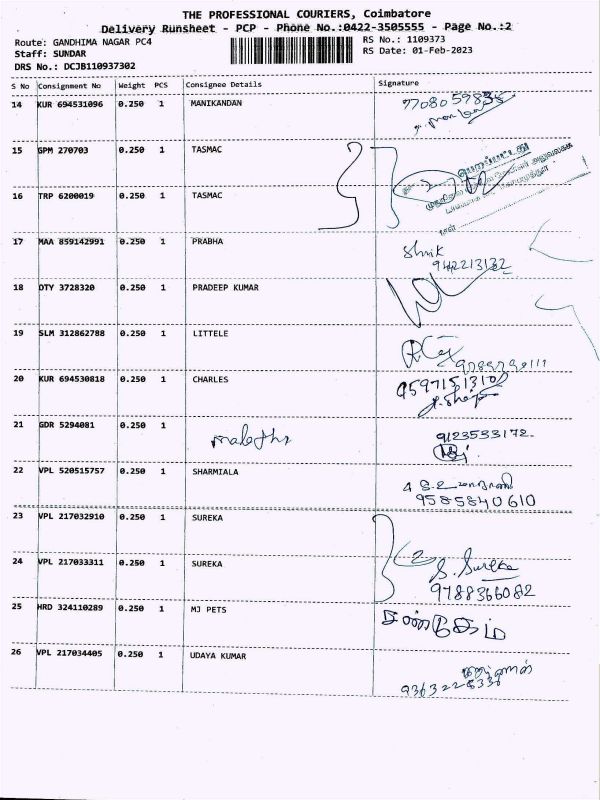 THE PROFESSIONAL COURIERS, Coimbatore
Delivery Runsheet - PCP - Phone No.:0422-3505555 - Page No.:2
Route: GANDHIMA NAGAR PC4
RS No.: 1109373
Staff: SUNDAR
RS Date: 01-Feb-2023
DRS No.: DCJB110937302
S No Consignment No Weight PCS Consignee Details Signature
14 KUR 694531096 0.250 1 MANIKANDAN
15 GPM 270703 0.250 1 TASMAC
பெறப்பட்டது
16 TRP 6200019 0.250 1 TASMAC
17 MAA 859142991 0.250 1 PRABHA
942213132
18 DTY 3728320 0.250 1 PRADEEP KUMAR
19 SLM 312862788 0.250 1 LITTELE
20 KUR 694530818 0.250 1 CHARLES
9597151310
21 GDR 5294081 0.250 1 malathi 9123533172
22 VPL 520515757 0.250 1 SHARMIALA
9585840610
23 VPL 217032910 0.250 1 SUREKA
24 VPL 217033311 0.250 1 SUREKA S. Sureka
9788366082
25 HRD 324110289 0.250 1 MJ PETS சண்முகம்
26 VPL 217034405 0.250 1 UDAYA KUMAR